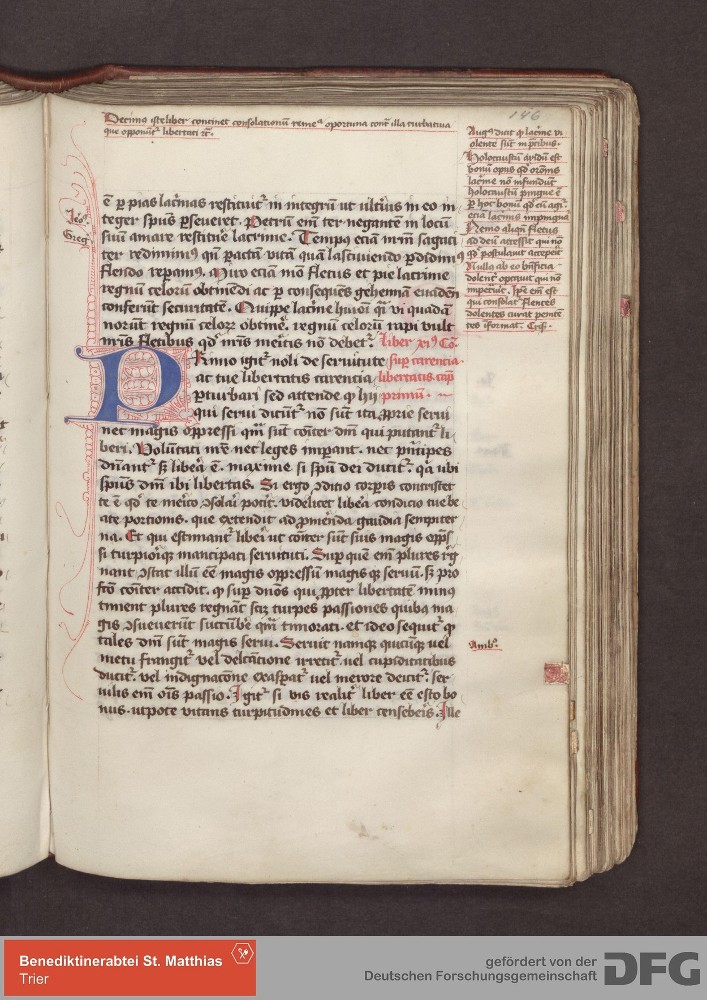 146
Decimus iste liber continet consolationum remedia oportuna contra illa turbativa
que opponuntur libertati etc.
Augus dicit qd lacrime vi
olente sunt in precibus.
Holocaustum aridum est
bonum opus qd oronis
lacrime non infundunt
holocaustum pingue est
per hoc bonum qd cum agitur
etiam lacrimis impinguatur
Nemo aliquando flectus
ad deum accessit qui non
qd postulavit accepit
Nulla ab eo beneficia
dolenter optavit qui non
impetravit. Ipse enim est
qui consolatur flentes
dolentes curat peniten
tes informat. Crisos.
Jero.
Greg.
e per pias lacrimas restituitur in integrum ut ulterius in eo in
teger spus perseveret. Petrum enim ter negantem in locum
suum amare restituere lacrime. Tempus etiam nostrum sagaci
ter redimimus quando peractam vitam quam lasciviendo perdidimus
flendo reparamus. Muro etiam modo fletus et pie lacrime
regnum celorum obtinendi ac per consequens gehennam evadendi
conferunt securitatem. Quippe lacrime huiusmodi quasi vi quadam
norunt regnum celorum obtinere. regnum celorum rapi vult
nostris fletibus quod nostris meritis non debetur. liber xi Co
Primo igitur noli de servitute super carencia
ac tue libertatis carencia libertatis cap
perturbari sed attende quod hii primum.
qui servi dicuntur non sunt ita proprie servi
nec magis oppressi quam sunt communiter domini qui putantur li
beri. Voluntati nostre nec leges imperant. nec principes
dominantur sed libera est. maxime si spiritu dei ducitur. quia ubi
spiritus domini ibi libertas. Si ergo conditio corporis contristet
te est quod te merito consolari poterit. videlicet libera condicio tue be
ate portionis. que extendit ad promerenda gaudia sempiter
na. Et qui estimantur liberi ut communiter sunt suis magis oppressi
si turpiorique mancipati servituti. Super quem enim plures reg
nant constat illum esse magis oppressum magisque servum. sed pro
fecto communiter accidit. quod super dominos qui propter libertatem minus
timent plures regnant scilicet turpes passiones quibus ma
gis consueverunt succumbere quam timorati. et ideo sequitur quod
tales domini sunt magis servi. Servit namque quicumque vel
metu frangitur vel delectatione irretitur. vel cupiditatibus
ducitur. vel indignacione exasperatur vel merore deicitur. ser
vilis enim omnis passio. Igitur si vis realiter liber esse esto bo
nus. utpote vitans turpitudines et liber censeberis. Ille
Amb.
Benediktinerabtei St. Matthias
Trier
gefördert von der
Deutschen Forschungsgemeinschaft
DFG